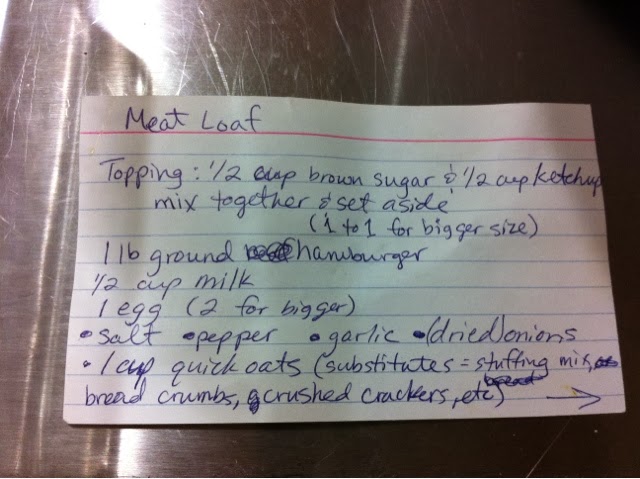 Meat Loaf
Topping: 1/2 cup brown sugar & 1/2 cup ketchup
mix together & set aside
(1 to 1 for bigger size)
1 lb ground hamburger
1/2 cup milk
1 egg (2 for bigger)
• salt • pepper • garlic • (dried) onions
• 1 cup quick oats (substitutes = stuffing mix,
bread crumbs, crushed crackers, etc) →